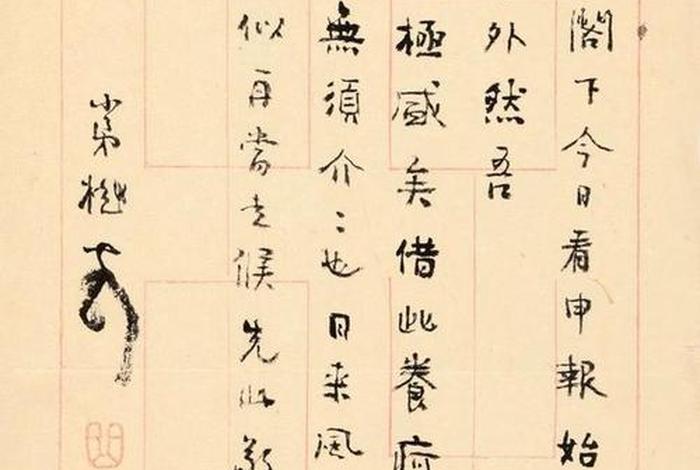 閣下今日看申報始
外然吾
極感矣借此養疴
無須介〻也日來風
似再當走候先此敬
小弟